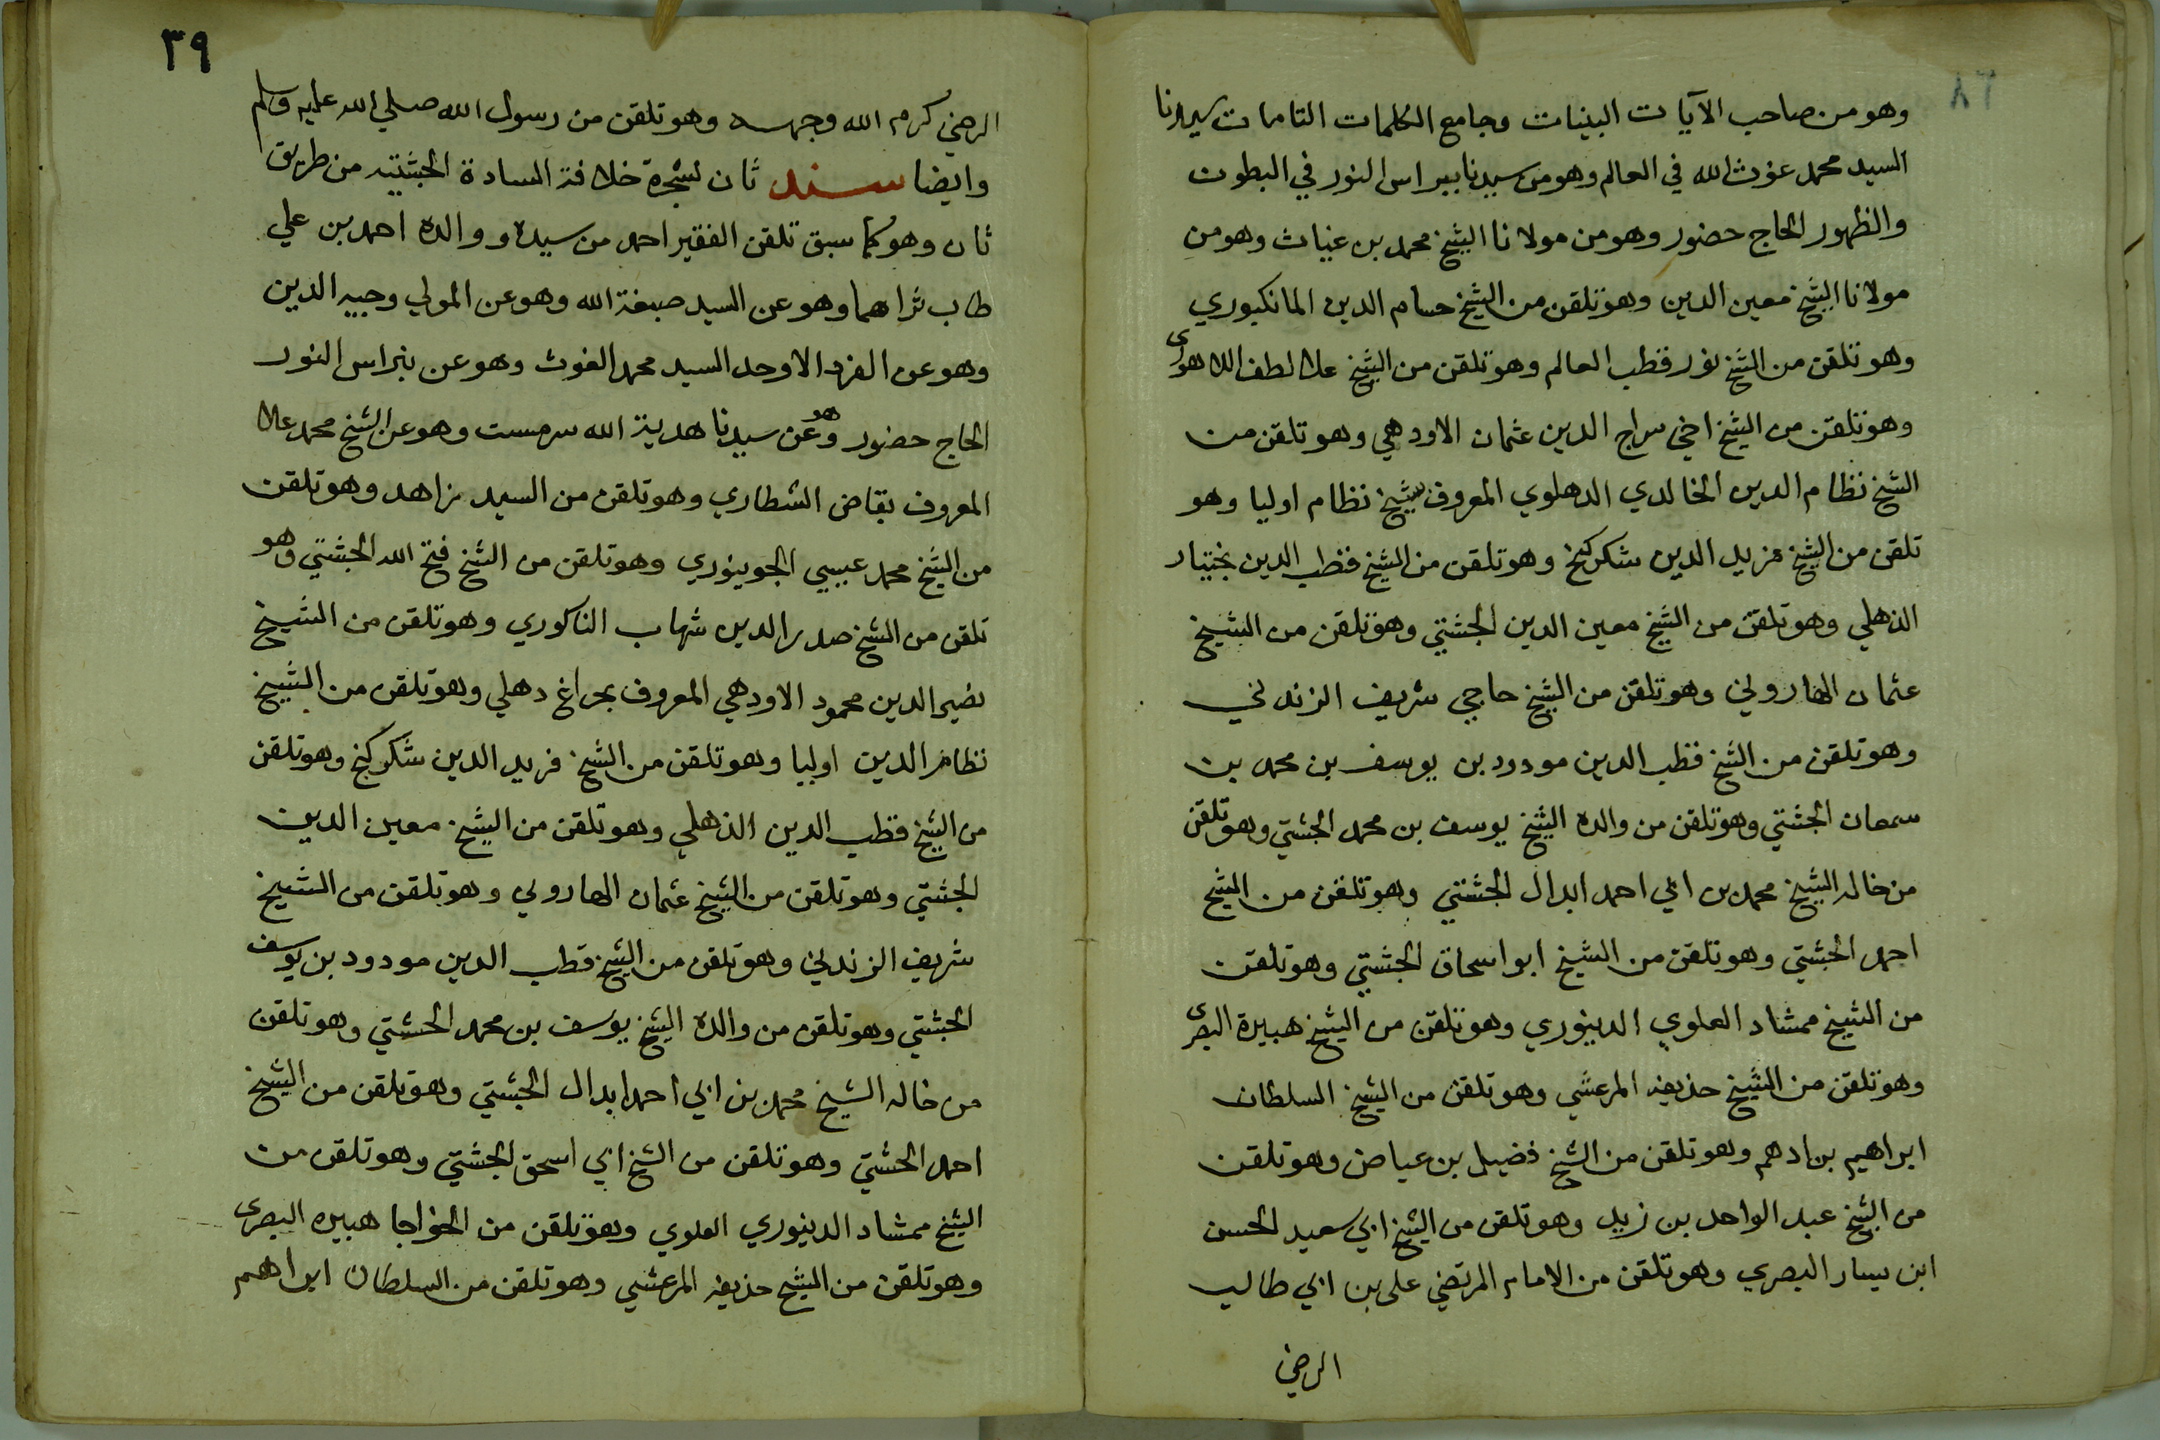 ٨٦
وهو من صاحب الآيات البينات وجامع الكلمات التامات سيدنا
السيد محمد غوث الله في العالم وهو من سيدنا ببراس النور في البطون
والظهور الحاج حضور وهو من مولانا الشيخ محمد بن غياث وهو من
مولانا الشيخ معين الدين وهو تلقن من الشيخ حسام الدين المانكبوري
وهو تلقن من الشيخ نور قطب العالم وهو تلقن من الشيخ علا لطف اللاهورى
وهو تلقن من الشيخ اخي سراج الدين عثمان الاودهي وهو تلقن من
الشيخ نظام الدين الخالدي الدهلوي المعروف بشيخ نظام اوليا وهو
تلقن من الشيخ فريد الدين شكركنج وهو تلقن من الشيخ قطب الدين بختيار
الذهلي وهو تلقن من الشيخ معين الدين الجشتي وهو تلقن من الشيخ
عثمان الهاروني وهو تلقن من الشيخ حاجي شريف الزندني
وهو تلقن من الشيخ قطب الدين مودود بن يوسف بن محمد بن
سمعان الجشتي وهو تلقن من والده الشيخ يوسف بن محمد الجشتي وهو تلقن
من خاله الشيخ محمد بن ابي احمد ابدال الجشتي وهو تلقن من الشيخ
احمد الجشتي وهو تلقن من الشيخ ابو اسحاق الجشتي وهو تلقن
من الشيخ ممشاد العلوي الدينوري وهو تلقن من الشيخ هبيرة البصرى
وهو تلقن من الشيخ حذيفه المرعشي وهو تلقن من الشيخ السلطان
ابراهيم بن ادهم وهو تلقن من الشيخ فضيل بن عياض وهو تلقن
من الشيخ عبد الواحد بن زيد وهو تلقن من الشيخ ابي سعيد الحسن
ابن يسار البصري وهو تلقن من الامام المرتضي على بن ابي طالب
الرضي
٣٩
الرضي كرم الله وجهه وهو تلقن من رسول الله صلي الله عليه وسلم
وايضا سند ثان لشجرة خلافة السادة الجشتيه من طريق
ثان وهو كما سبق تلقن الفقير احمد من سيده ووالده احمد بن علي
طاب ثراهما وهو عن السيد صبغة الله وهو عن المولي وجيه الدين
وهو عن الفرد الاوحد السيد محمد الغوث وهو عن نبراس النور
الحاج حضور وهو عن سيدنا هدية الله سرمست وهو عن الشيخ محمد علا
المعروف بقاض الشطاري وهو تلقن من السيد زاهد وهو تلقن
من الشيخ محمد عيسي الجوينوري وهو تلقن من الشيخ فتح الله الجشتي وهو
تلقن من الشيخ صدر الدين شهاب الناكوري وهو تلقن من الشيخ
نصير الدين محمود الاودهي المعروف بجراغ دهلي وهو تلقن من الشيخ
نظام الدين اوليا وهو تلقن من الشيخ فريد الدين شكركنج وهو تلقن
من الشيخ قطب الدين الذهلي وهو تلقن من الشيخ معين الدين
الجشتي وهو تلقن من الشيخ عثمان الهاروني وهو تلقن من الشيخ
شريف الزندني وهو تلقن من الشيخ قطب الدين مودود بن يوسف
الجشتي وهو تلقن من والده الشيخ يوسف بن محمد الجشتي وهو تلقن
من خاله الشيخ محمد بن ابي احمد ابدال الجشتي وهو تلقن من الشيخ
احمد الجشتي وهو تلقن من الشيخ ابي اسحق الجشتي وهو تلقن من
الشيخ ممشاد الدينوري العلوي وهو تلقن من الخواجا هبيره البصرى
وهو تلقن من الشيخ حذيفه المرعشي وهو تلقن من السلطان ابراهيم